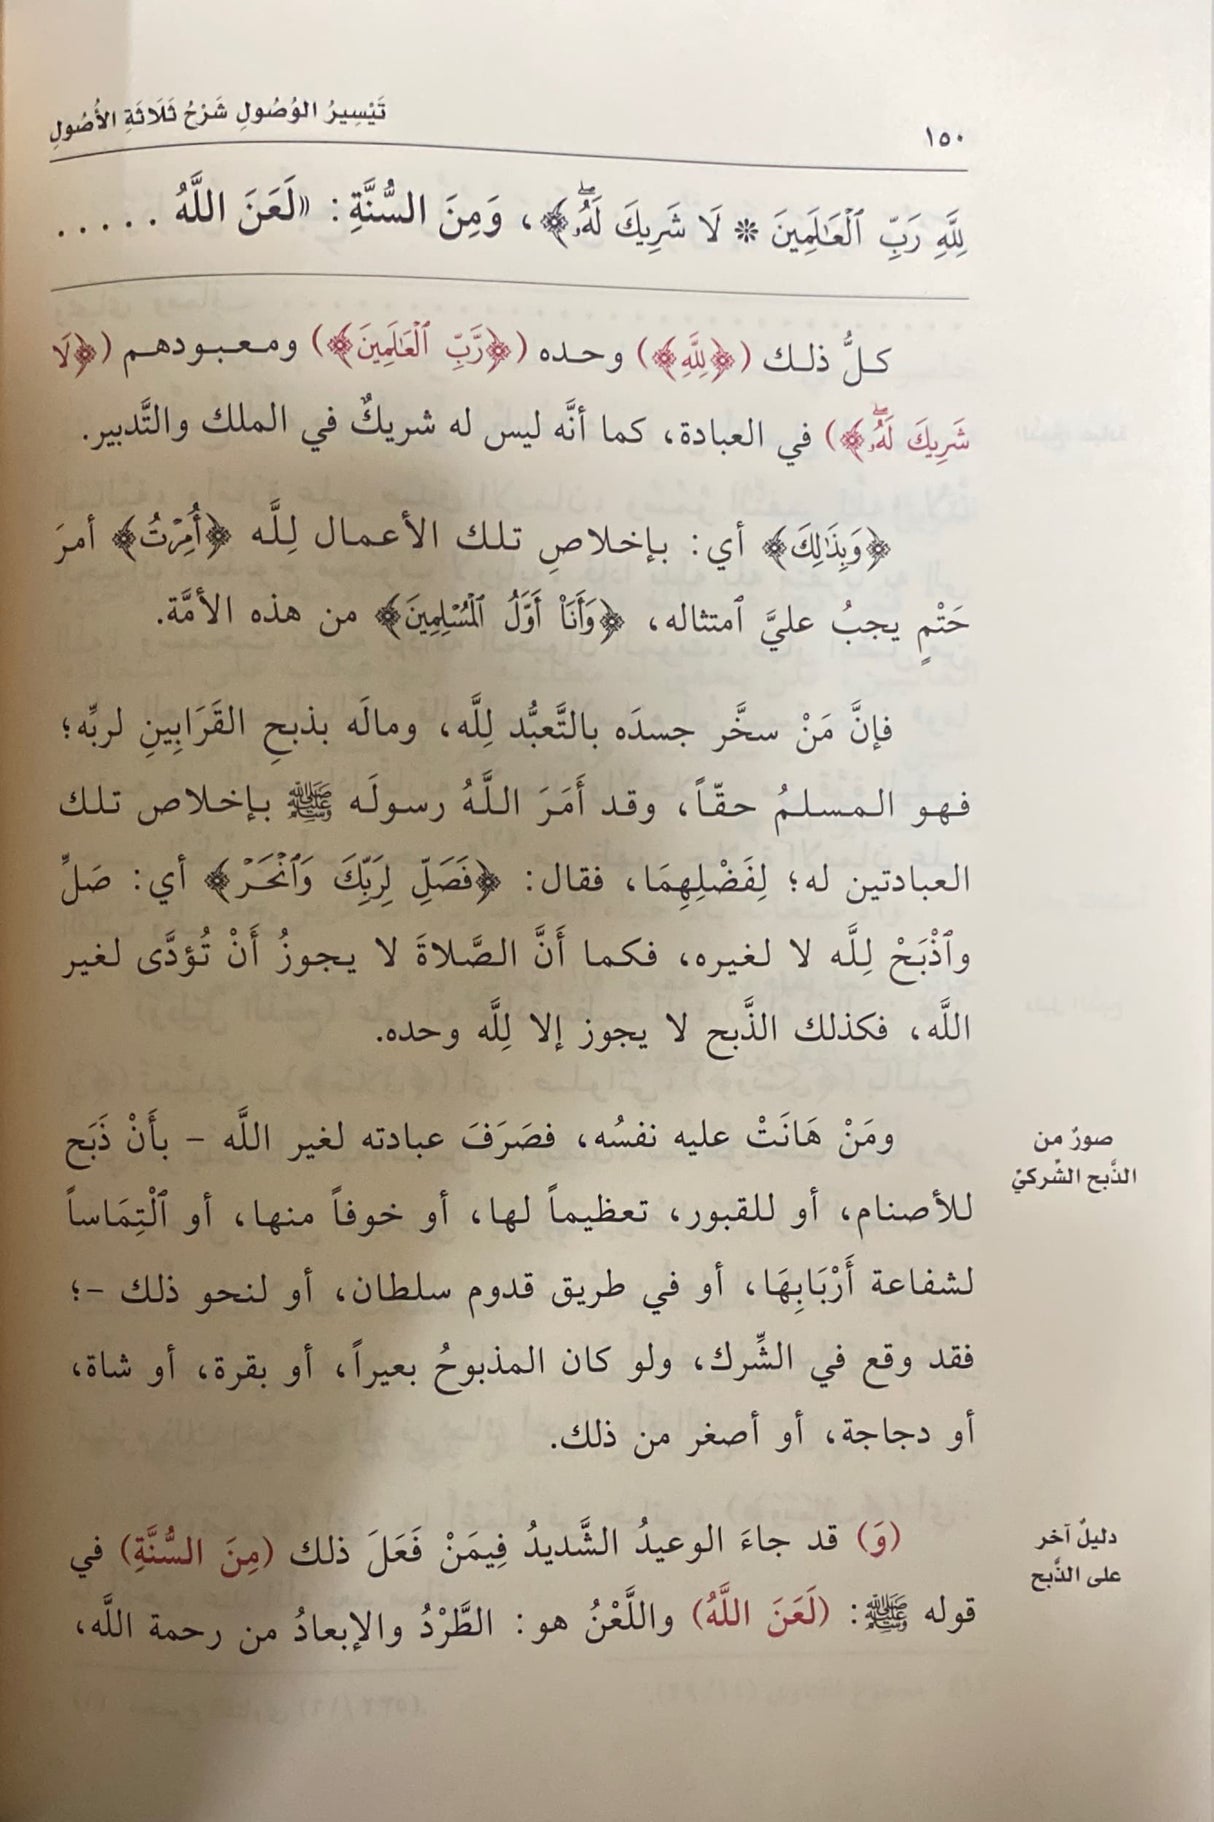 تَيْسِيرُ الوُصُولِ شَرْحُ ثَلَاثَةِ الأُصُولِ
١٥٠
لِلَّهِ رَبِّ ٱلْعَـٰلَمِينَ * لَا شَرِيكَ لَهُۥۖ﴾، وَمِنَ السُّنَّةِ: «لَعَنَ اللَّهُ .....
كلُّ ذلك (﴿لِلَّهِ﴾) وحده (﴿رَبِّ ٱلْعَـٰلَمِينَ﴾) ومعبودهم (﴿لَا
شَرِيكَ لَهُۥۖ﴾) في العبادة، كما أنَّه ليس له شريكٌ في الملك والتَّدبير.
﴿وَبِذَٰلِكَ﴾ أي: بإخلاصِ تلك الأعمال لِلَّه ﴿أُمِرْتُ﴾ أمرَ
حَتْمٍ يجبُ عليَّ ٱمتثاله، ﴿وَأَنَا۠ أَوَّلُ ٱلْمُسْلِمِينَ﴾ من هذه الأمَّة.
فإنَّ مَنْ سخَّر جسدَه بالتَّعبُّد لِلَّه، ومالَه بذبحِ القَرَابِينِ لربِّه؛
فهو المسلمُ حقّاً، وقد أَمَرَ اللَّهُ رسولَه ﷺ بإخلاص تلك
العبادتين له؛ لِفَضْلِهِمَا، فقال: ﴿فَصَلِّ لِرَبِّكَ وَٱنْحَرْ﴾ أي: صَلِّ
وٱذْبَحْ لِلَّه لا لغيره، فكما أَنَّ الصَّلاةَ لا يجوزُ أَنْ تُؤدَّى لغير
اللَّه، فكذلك الذَّبح لا يجوز إلا لِلَّه وحده.
ومَنْ هَانَتْ عليه نفسُه، فصَرَفَ عبادته لغير اللَّه – بأَنْ ذَبَح
صورٌ من
الذَّبح الشِّركيِّ
للأصنام، أو للقبور، تعظيماً لها، أو خوفاً منها، أو ٱلْتِمَاساً
لشفاعة أَرْبَابِهَا، أو في طريق قدوم سلطان، أو لنحو ذلك –؛
فقد وقع في الشِّرك، ولو كان المذبوحُ بعيراً، أو بقرة، أو شاة،
أو دجاجة، أو أصغر من ذلك.
(وَ) قد جاءَ الوعيدُ الشَّديدُ فِيمَنْ فَعَلَ ذلك (مِنَ السُّنَّةِ) في
دليلٌ آخر
على الذَّبح
قوله ﷺ: (لَعَنَ اللَّهُ) واللَّعْنُ هو: الطَّرْدُ والإبعادُ من رحمة اللَّه،